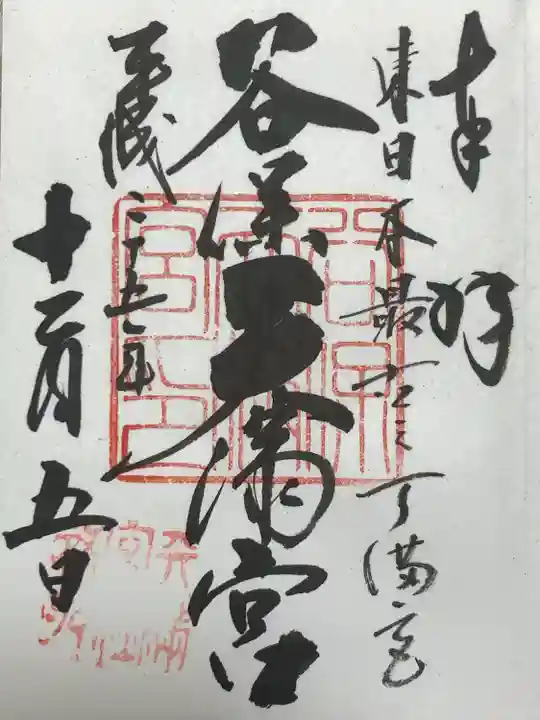 奉拝
東日本最古之天満宮
谷保天満宮
平成二十五年
十二月五日